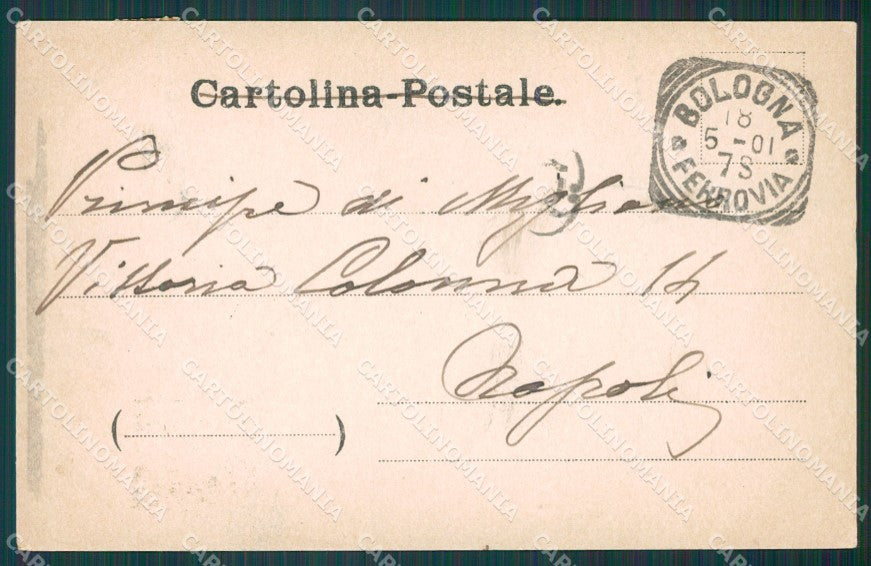 Cartolina-Postale.
BOLOGNA
18
5-01
7S
FERROVIA
Principe di Migliano
Vittoria Colonna 14
Napoli
(                    )
CARTOLINOMANIA